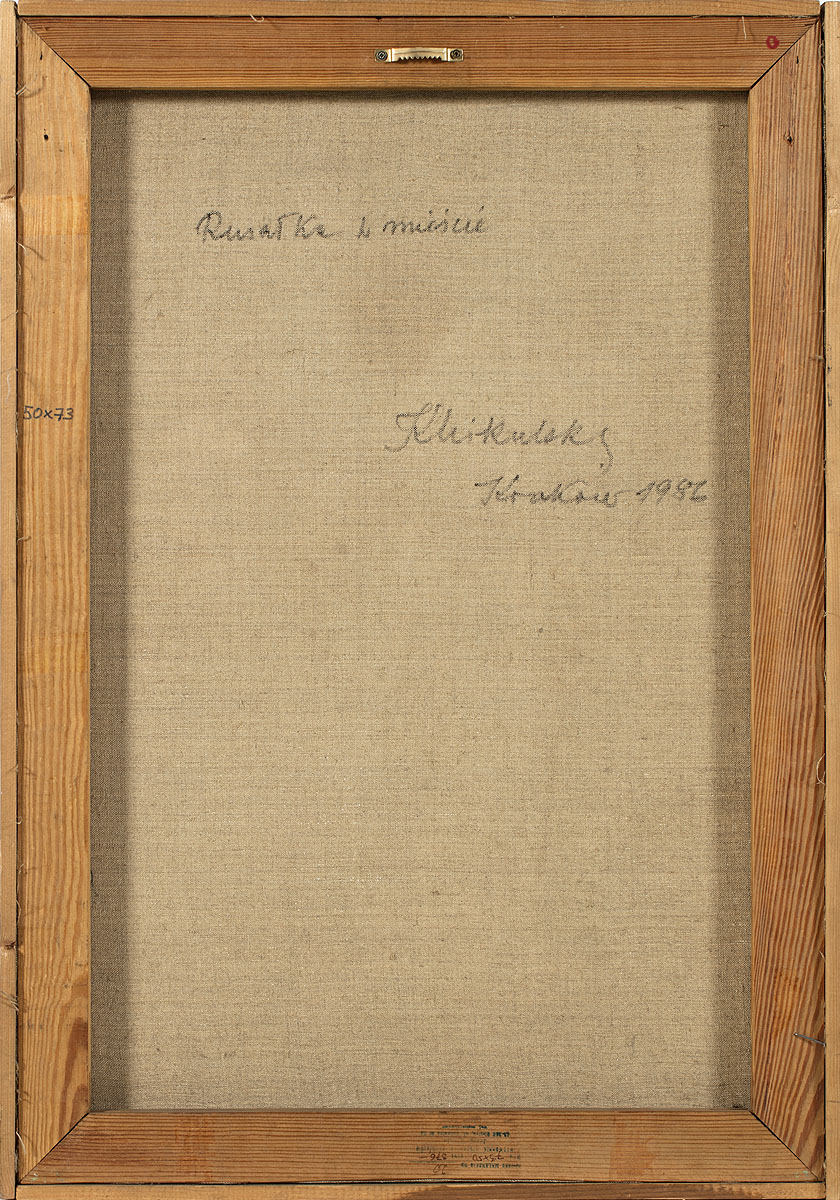 Rusałka w mieście
50x73
K Mikulski
Krakow 1982